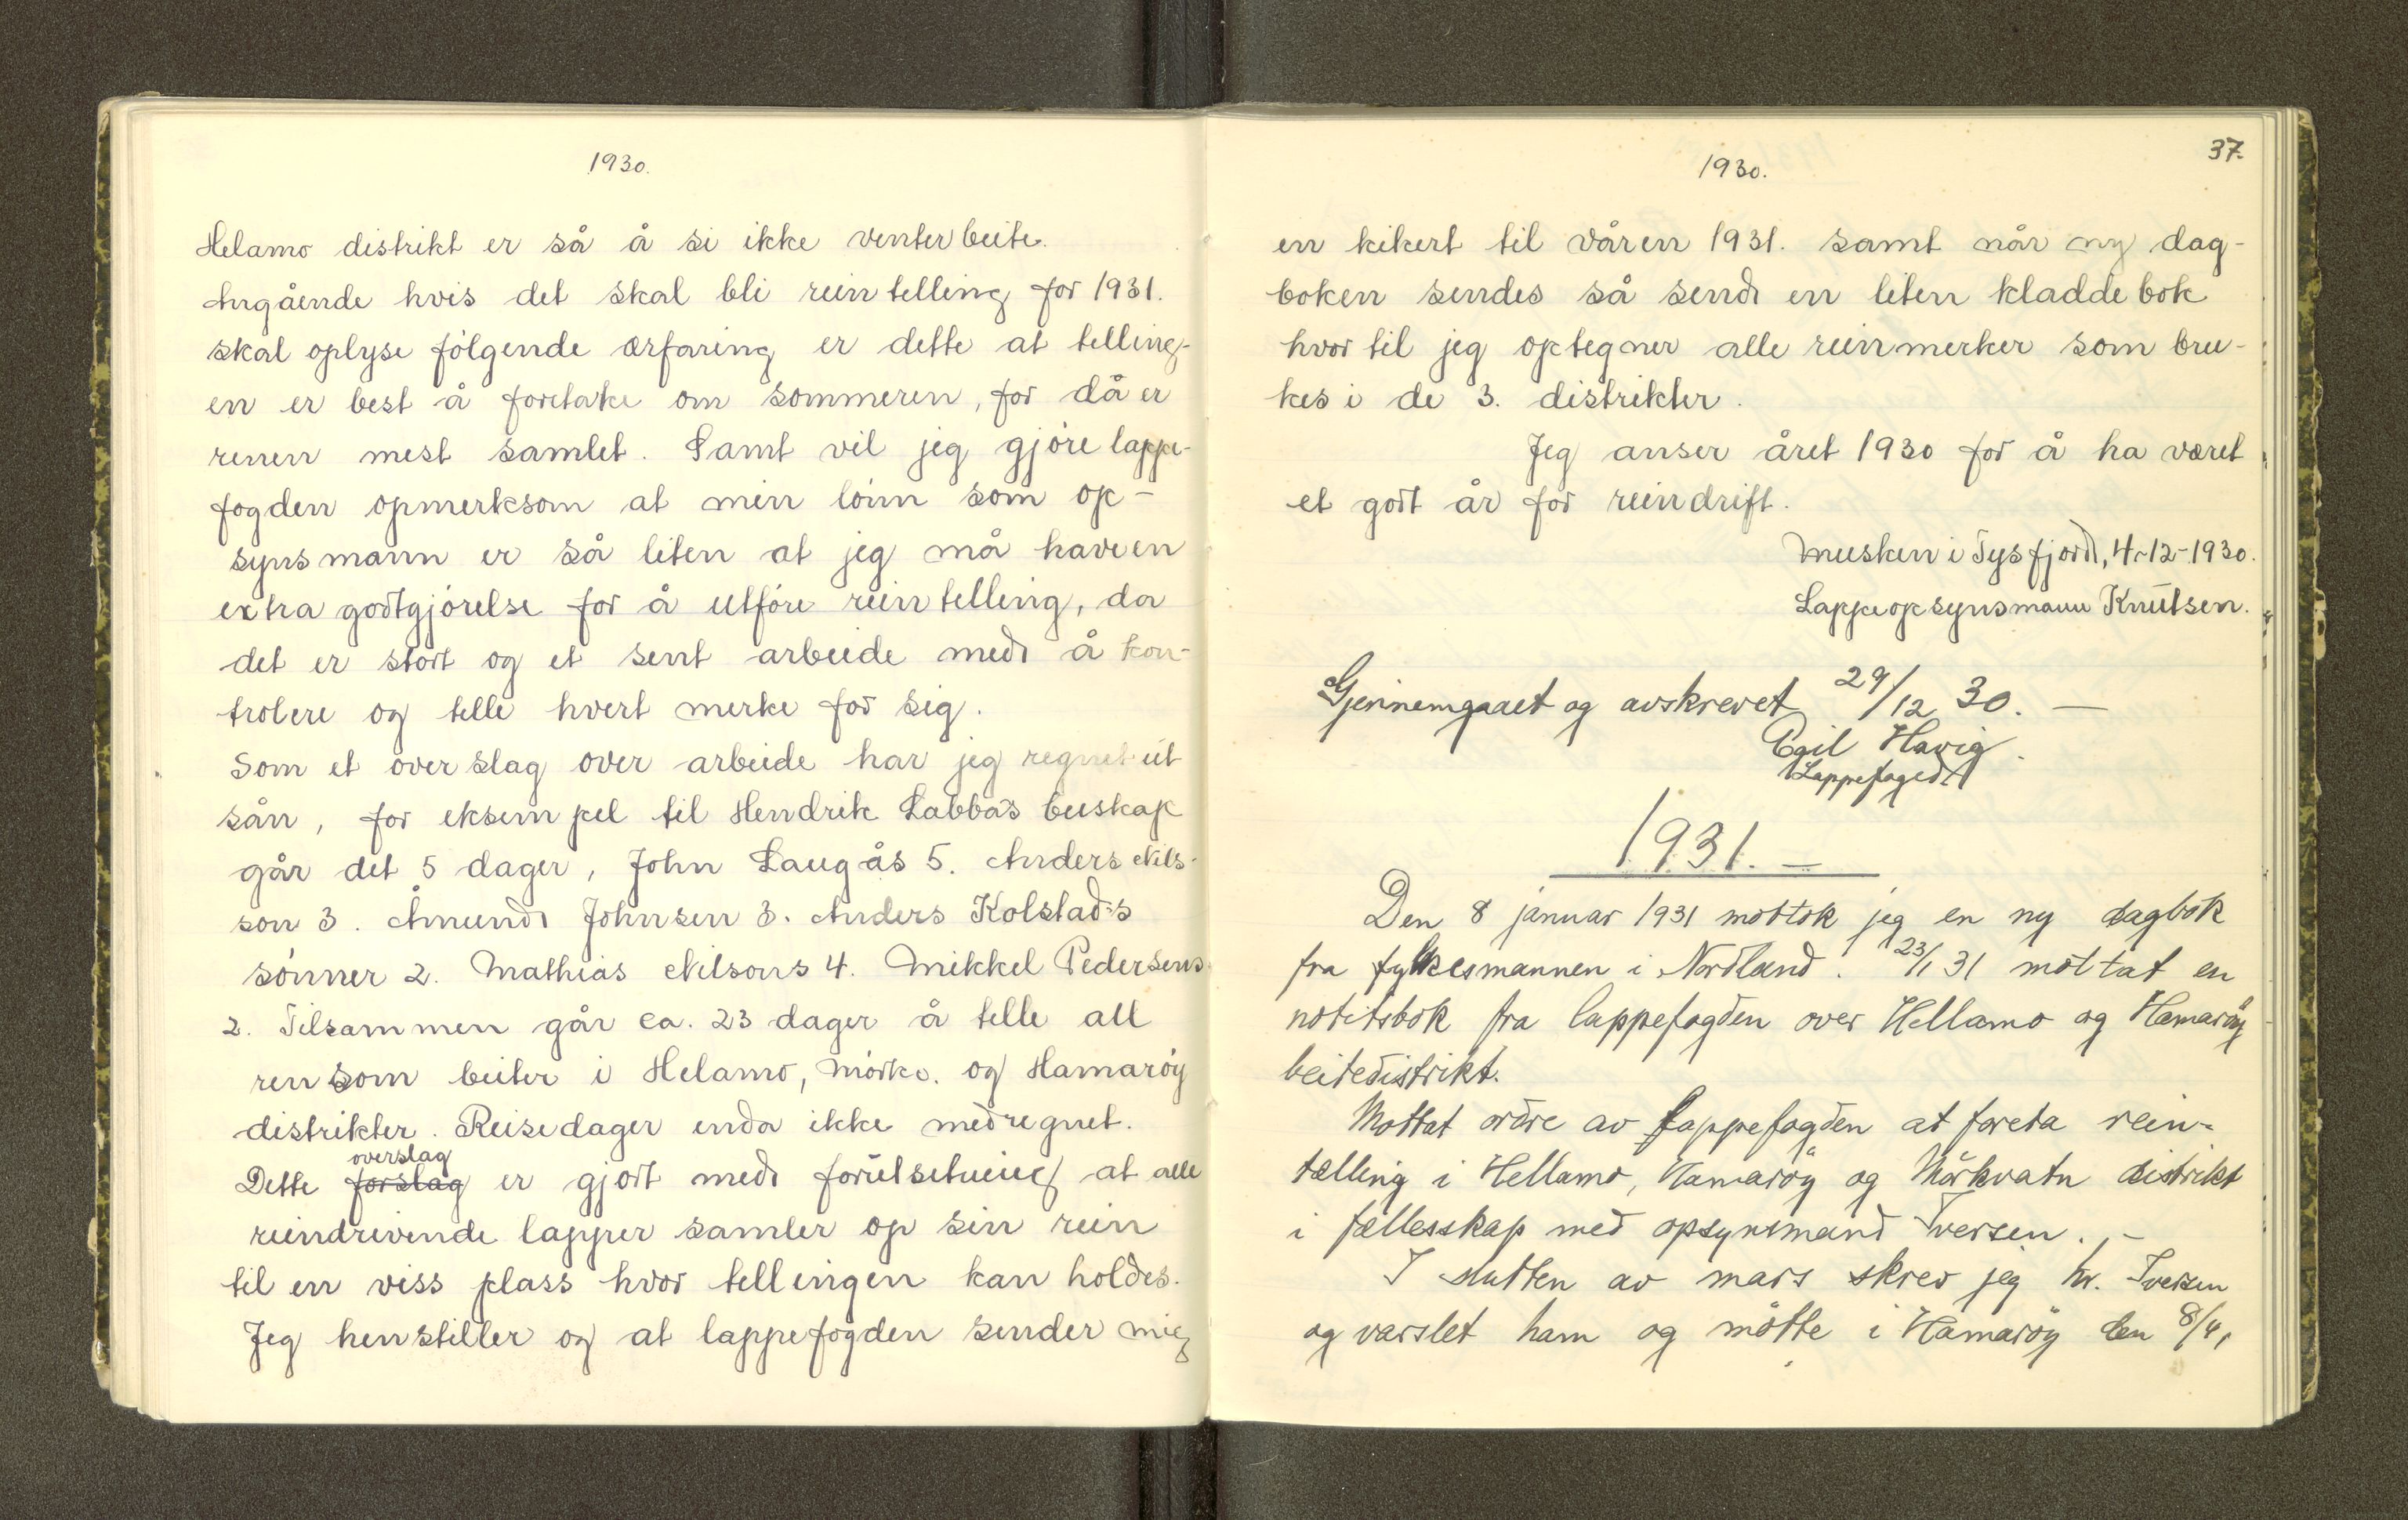 1930.
Helamo distrikt er så å si ikke venterbeite.
Angående hvis det skal bli reintelling for 1931.
skal oplyse følgende ærfaring er dette at telling-
en er best å foretake om sommeren, for då er
renen mest samlet. Samt vil jeg gjøre lappe-
fogden opmerksom at min lønn som op-
synsmann er så liten at jeg må have en
extra godtgjørelse for å utføre reintelling, da
det er stort og et sent arbeide med å kon-
trolere og telle hvert merke for sig.
Som et overslag over arbeide har jeg regnet ut
sån, for eksempel til Hendrik Labbas buskap
går det 5 dager, John Laugås 5. Anders Nils-
son 3. Amund Johnsen 3. Anders Kolstad's
sønner 2. Mathias Nilsons 4. Mikkel Pedersens
2. Tilsammen går ca. 23 dager å telle all
ren som beiter i Helamo, Mørkv. og Hamarøy
distrikter. Reisedager enda ikke medregnet.
overslag
Dette forslag er gjort med forutsetneing at alle
reindrivende lapper samler op sin rein
til en viss plass hvor tellingen kan holdes.
Jeg henstiller og at lappefogden sender mig
37.
1930.
en kikert til våren 1931. samt når ny dag-
boken sendes så send en liten kladdebok
hvor til jeg optegner alle reinmerker som bru-
kes i de 3. distrikter.
Jeg anser året 1930 for å ha været
et godt år for reindrift.
Musken i Tysfjord, 4-12-1930.
Lappeopsynsmann Knutsen.
Gjennemgaaet og avskrevet 29/12 30. —
Egil Havig.
Lappefoged.
1931. —
Den 8 januar 1931 mottok jeg en ny dagbok
fra fylkesmannen i Nordland. 23/1 31 mottat en
notitsbok fra lappefogden over Hellamo og Hamarøy
beitedistrikt.
Mottat ordre av Lappefogden at foreta rein-
tælling i Hellamo, Hamarøy og Mörkvatn distrikt
i fællesskap med opsynsmand Iversen. —
I slutten av mars skrev jeg hr. Iversen
og varslet ham og møtte i Hamarøy den 8/4,